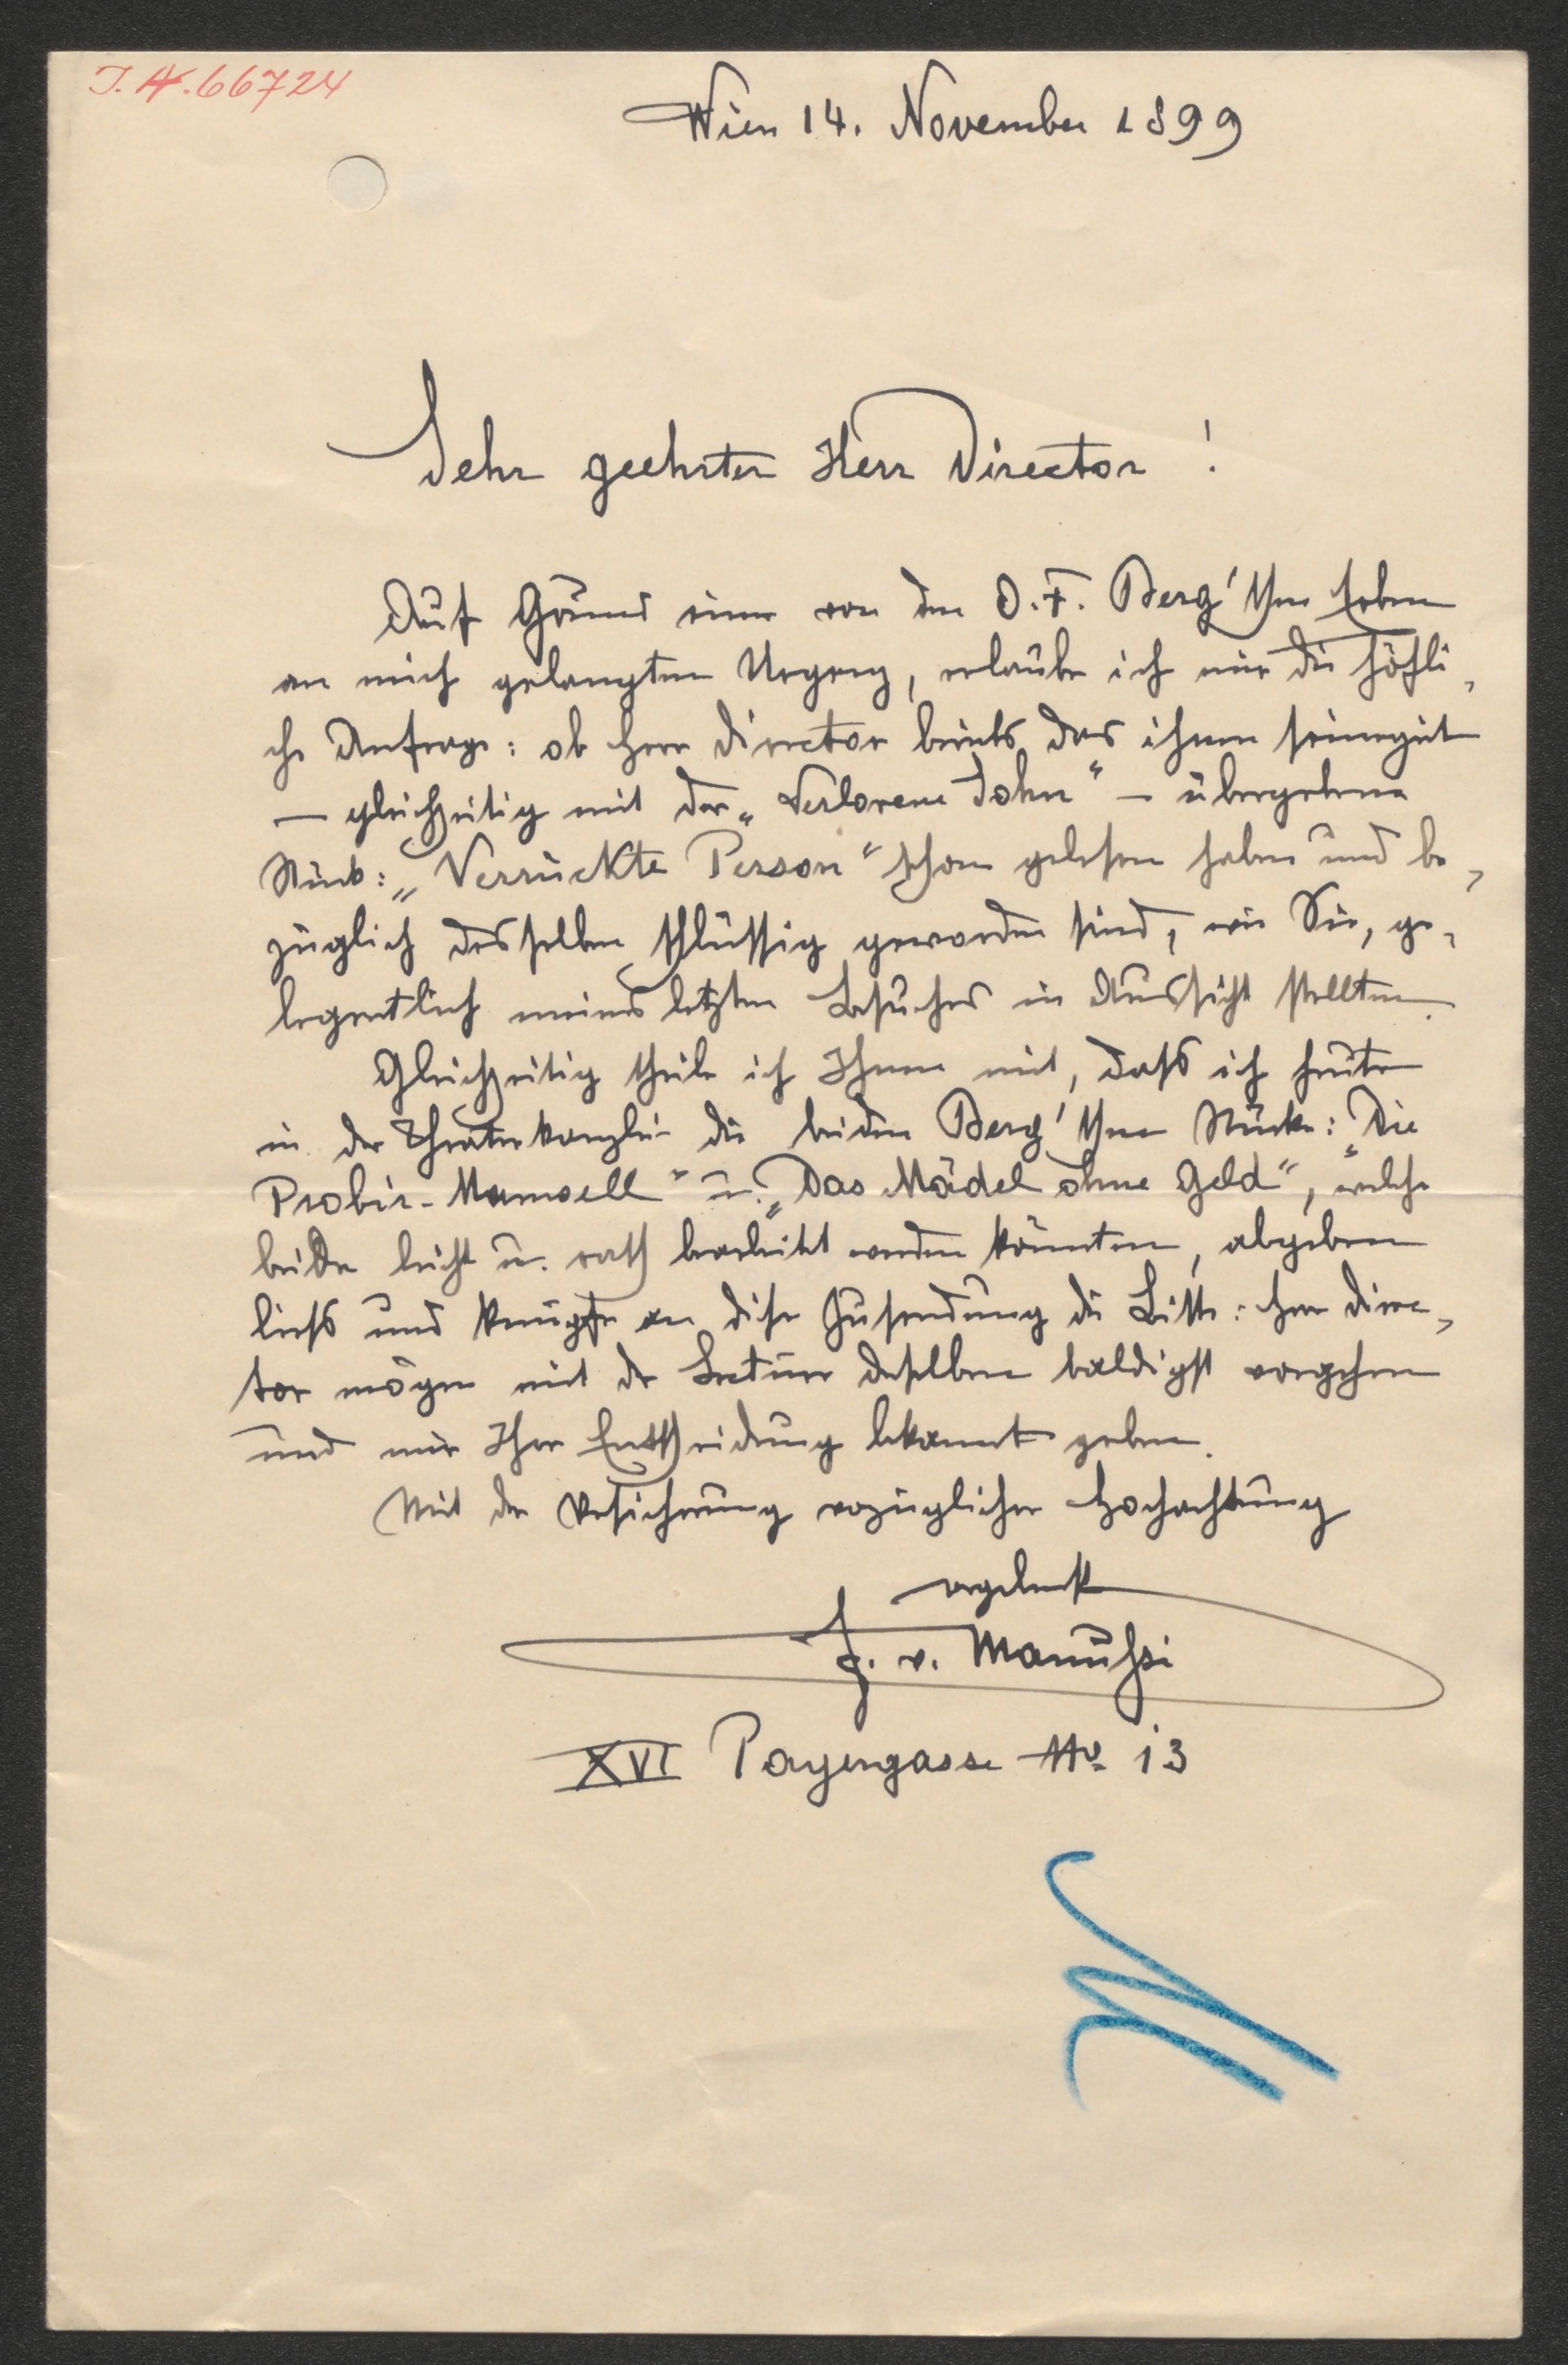 J.N. 66724
Wien 14. November 1899
Sehr geehrter Herr Director!
Auf Grund einer von den O. F. Berg'schen Erben
an mich gelangten Urgenz, erlaube ich mir die höfli-
che Anfrage: ob Herr Director bereits das ihnen seinerzeit
— gleichzeitig mit der „Verlorene Sohn“ — übergebene
Stück: „Verrückte Person“ schon gelesen haben und be-
züglich desselben schlüssig geworden sind, wie Sie, ge-
legentlich meines letzten Besuches in Aussicht stellten.
Gleichzeitig theile ich Ihnen mit, dass ich heute
in der Theaterkanzlei die beiden Berg'schen Stücke: „Die
Probir-Mamsell“ u. „Das Mädel ohne Geld“, welche
beide leicht u. rasch bearbeitet werden könnten, abgeben
liess und knüpfe an diese Zusendung die Bitte: Herr Direc-
tor mögen mit der Lectüre derselben baldigst vorgehen
und mir Ihre Entscheidung bekannt geben.
Mit der Versicherung vorzüglicher Hochachtung
ergebenst
F. v. Manussi
XVI Payergasse No 13